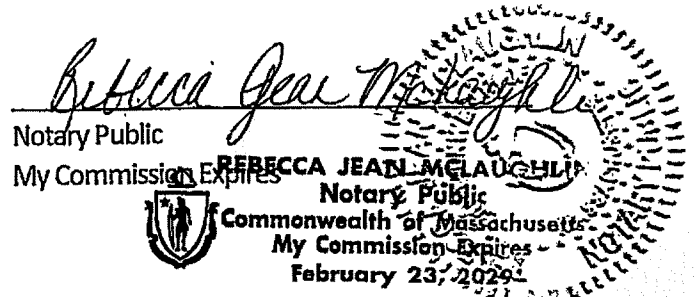 Rebecca Jean McLaughlin
Notary Public
My Commission Expires
REBECCA JEAN MCLAUGHLIN
Notary Public
Commonwealth of Massachusetts
My Commission Expires
February 23, 2029
NOTARY